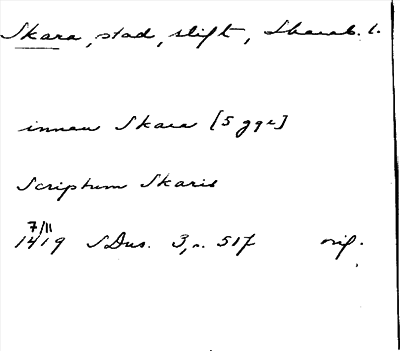 Skara, stad, stift, Skarab. l.
innan Skara [5 ggr]
Scriptum Skaris
7/11
1419 SDns. 3, s. 517 orig.